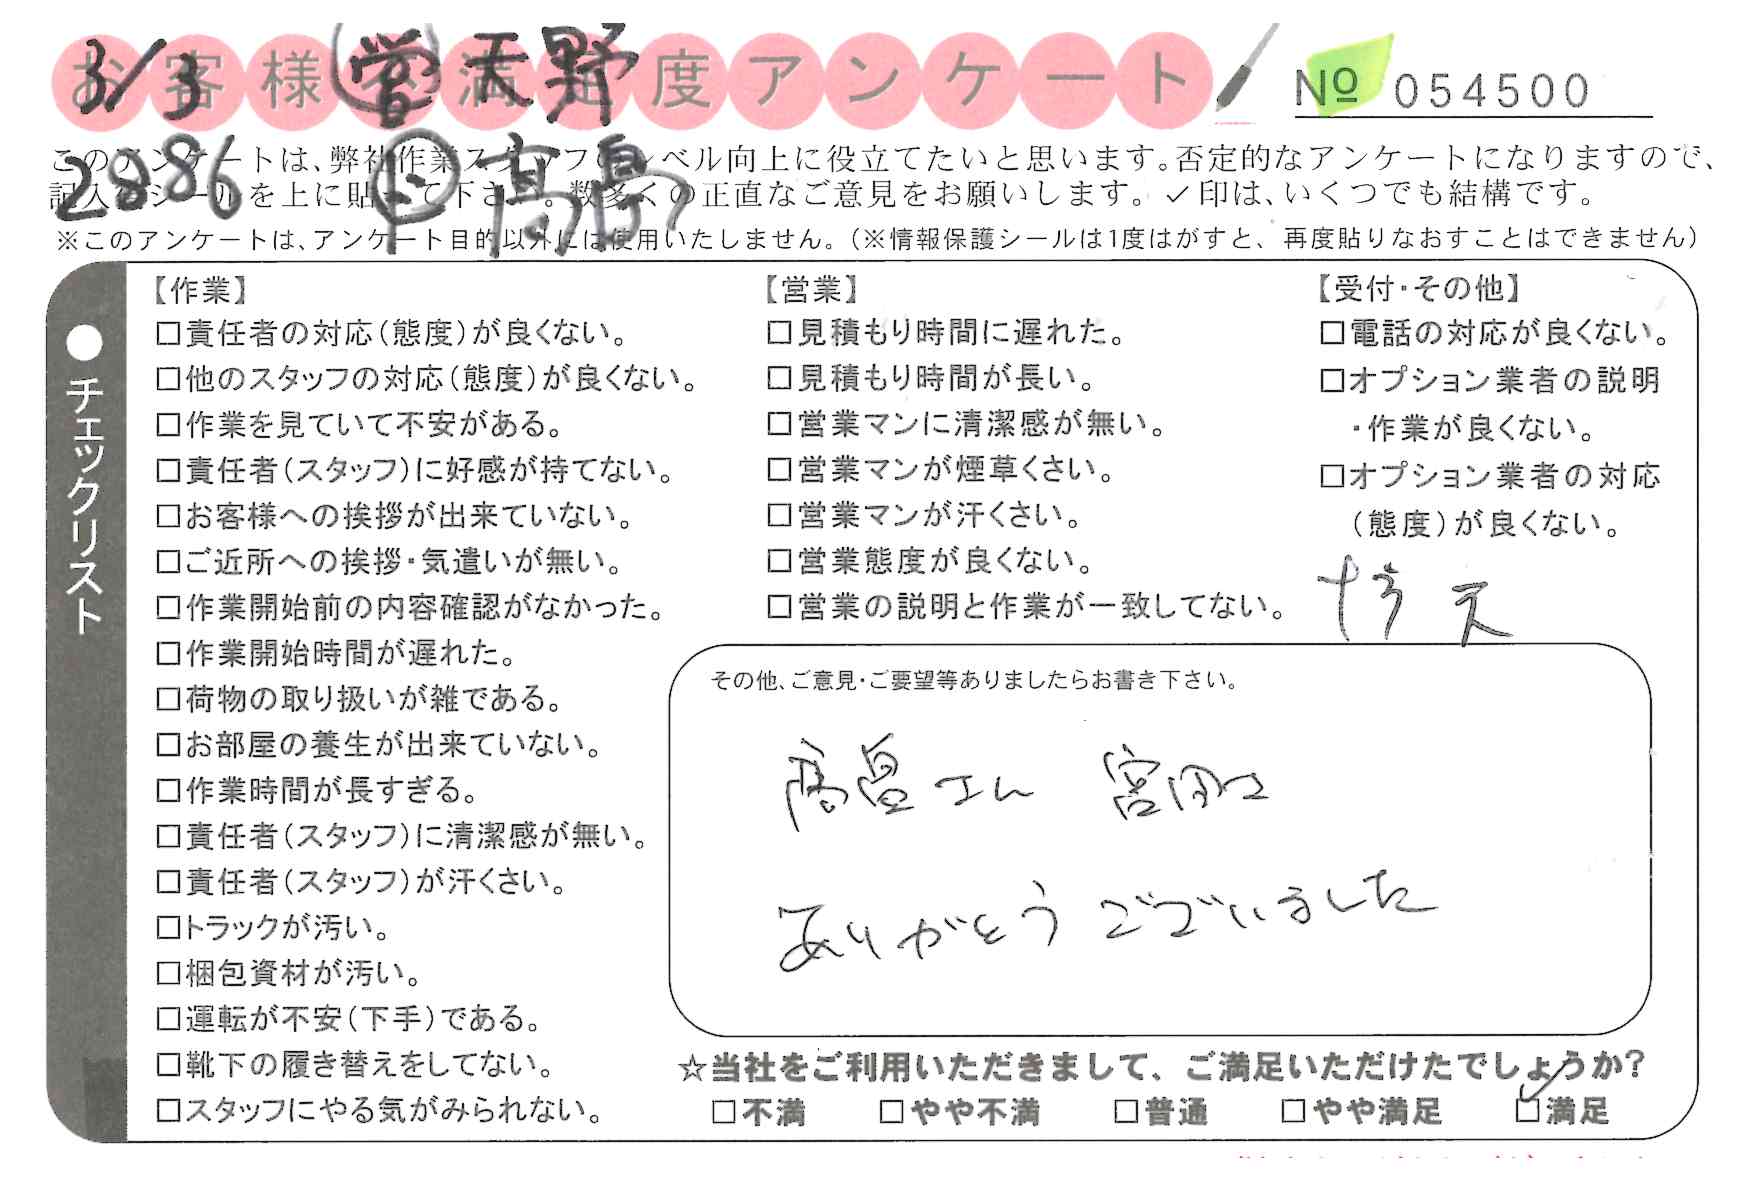 お客様不満足度アンケート
№ 054500
3/3 営 天野
2886 高畠
このアンケートは、弊社作業スタッフのレベル向上に役立てたいと思います。否定的なアンケートになりますので、
記入後シールを上に貼って下さい。数多くの正直なご意見をお願いします。✓印は、いくつでも結構です。
※このアンケートは、アンケート目的以外には使用いたしません。(※情報保護シールは1度はがすと、再度貼りなおすことはできません)
●チェックリスト
【作業】
□責任者の対応(態度)が良くない。
□他のスタッフの対応(態度)が良くない。
□作業を見ていて不安がある。
□責任者(スタッフ)に好感が持てない。
□お客様への挨拶が出来ていない。
□ご近所への挨拶・気遣いが無い。
□作業開始前の内容確認がなかった。
□作業開始時間が遅れた。
□荷物の取り扱いが雑である。
□お部屋の養生が出来ていない。
□作業時間が長すぎる。
□責任者(スタッフ)に清潔感が無い。
□責任者(スタッフ)が汗くさい。
□トラックが汚い。
□梱包資材が汚い。
□運転が不安(下手)である。
□靴下の履き替えをしてない。
□スタッフにやる気がみられない。
【営業】
□見積もり時間に遅れた。
□見積もり時間が長い。
□営業マンに清潔感が無い。
□営業マンが煙草くさい。
□営業マンが汗くさい。
□営業態度が良くない。
□営業の説明と作業が一致してない。
【受付・その他】
□電話の対応が良くない。
□オプション業者の説明
・作業が良くない。
□オプション業者の対応
(態度)が良くない。
その他、ご意見・ご要望等ありましたらお書き下さい。
高畠さん 宮田さん
ありがとうございました
☆当社をご利用いただきまして、ご満足いただけたでしょうか?
□不満 □やや不満 □普通 □やや満足 ☑満足